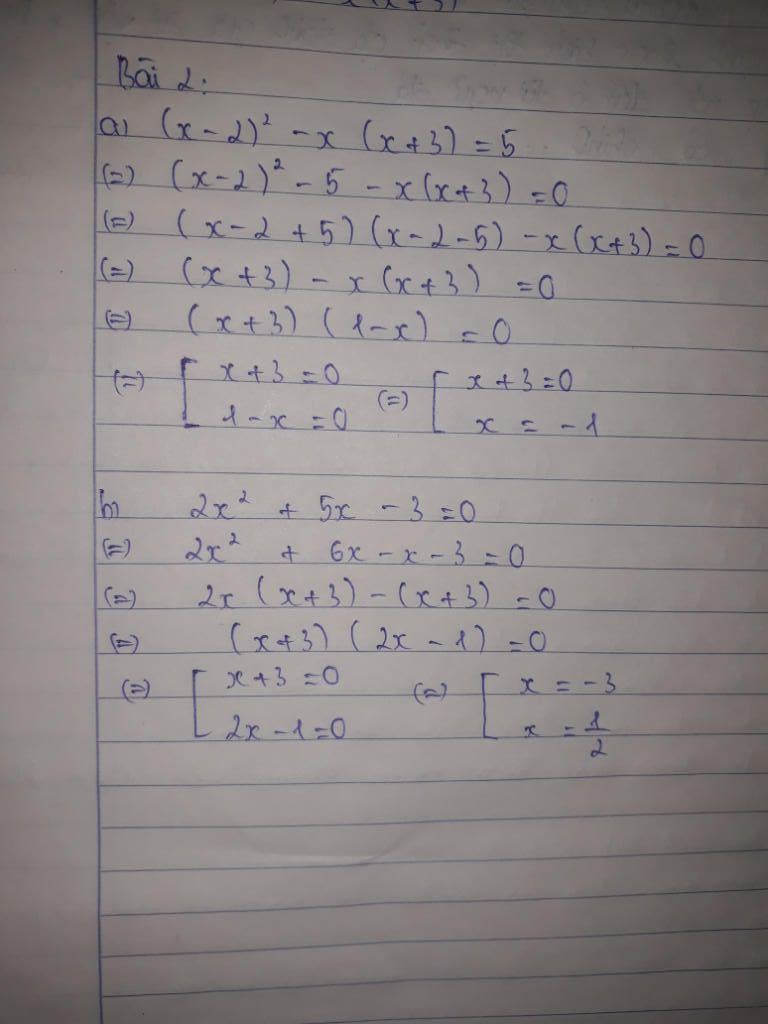 x(x+3)
Bài 2:
a) (x-2)² - x (x+3) = 5
(=) (x-2)² - 5 - x(x+3) = 0
(=) (x-2+5) (x-2-5) - x(x+3) = 0
(=) (x+3) - x (x+3) = 0
(=) (x+3) (1-x) = 0
(=) [ x+3 = 0 (=) [ x+3 = 0
1-x = 0 x = -1
b) 2x² + 5x - 3 = 0
(=) 2x² + 6x - x - 3 = 0
(=) 2x (x+3) - (x+3) = 0
(=) (x+3) (2x-1) = 0
(=) [ x+3 = 0 (=) [ x = -3
2x-1 = 0 x = 1/2